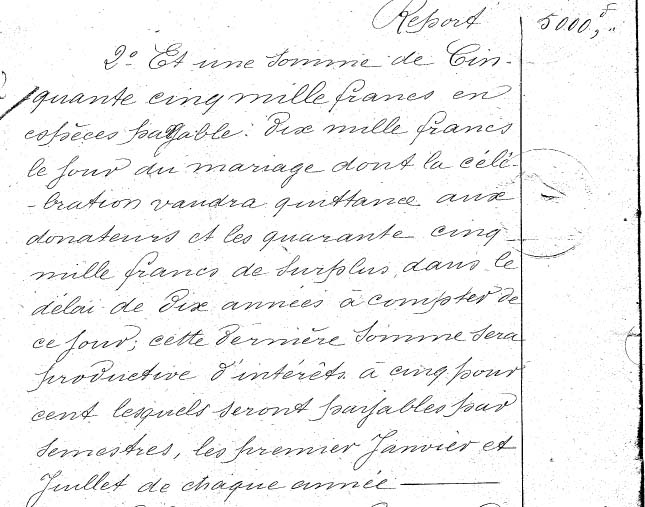 Report 5000,"
2º Et une somme de Cin-
quante cinq mille francs en
espèces payable: dix mille francs
le jour du mariage dont la célé-
-bration vaudra quittance aux
donateurs et les quarante cinq
mille francs de surplus, dans le
délai de dix années à compter de
ce jour; cette dernière somme sera
productive d'intérêts à cinq pour
cent lesquels seront payables par
semestres, les premier Janvier et
Juillet de chaque année